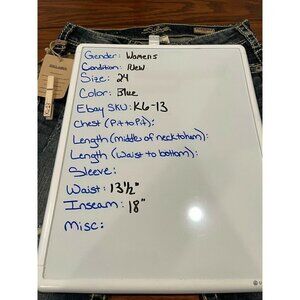 Gender: Womens
Condition: New
Size: 24
Color: Blue
Ebay SKU: K6-13
Chest (Pit to Pit):
Length (middle of neck to hem):
Length (Waist to bottom):
Sleeve:
Waist: 13½"
Inseam: 18"
Misc: